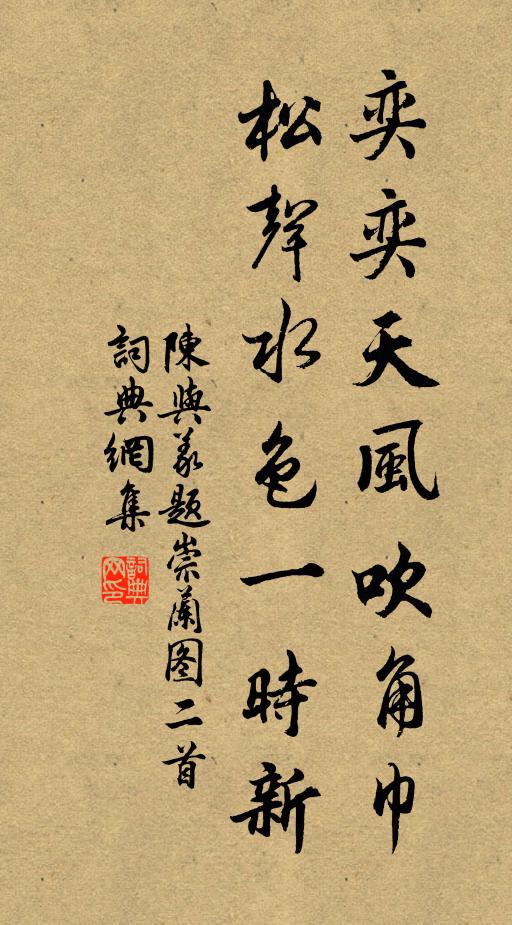 奕奕天風吹角巾
松聲水色一時新
陳與義題崇蘭图二首
詞典網集
詞典網印